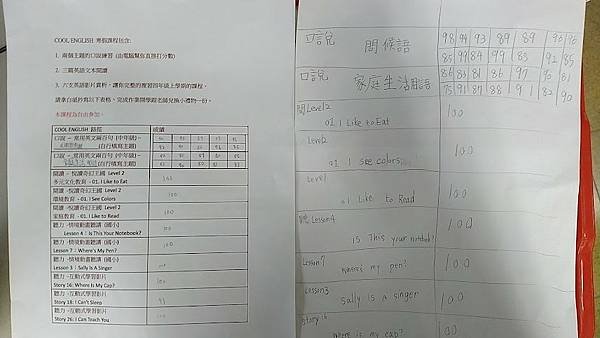 COOL ENGLISH 寒假課程包含:
1. 兩個主題的口說練習 (由電腦幫你直接打分數)
2. 三篇英語文本閱讀
3. 六支英語影片賞析，讓你完整的複習四年級上學期的課程。
請拿白紙抄寫以下表格，完成作業開學跟老師兌換小禮物一份。
本課程為自由參加。
COOL ENGLISH 路徑 成績
口說 – 常用英文兩百句 (中年級) –
(自行填寫主題)
口說 – 常用英文兩百句 (中年級) –
(自行填寫主題)
閱讀 – 悅讀奇幻王國 Level 2
多元文化教育 – 01. I Like to Eat 100
閱讀 – 悅讀奇幻王國 Level 2
環境教育 – 01. I See Colors 100
閱讀 – 悅讀奇幻王國 Level
家庭教育 – 01. I Like to Read 100
聽力 –情境動畫聽講 (國小)
Lesson 4：Is This Your Notebook? 100
聽力 –情境動畫聽講 (國小)
Lesson 7：Where's My Pen? 100
聽力 –情境動畫聽講 (國小)
Lesson 3：Sally Is A Singer 100
聽力 –互動式學習影片
Story 16: Where Is My Cap? 100
聽力 –互動式學習影片
Story 18: I Can't Sleep
聽力 –互動式學習影片
Story 26: I Can Teach You 100
口說 問候語 98 94 93 89 89
85 99 84 99 83 92 85
口說 家庭生活用語 86 83 81 86 97
75 91 87 88 91 82 90
閱 Level 2
01 I Like to Eat 100
Level 2
01 I see colors 100
Level
01 I Like to Read 100
聽 Lesson 4
Is This your notebook? 100
Lesson 7
Where's my pen? 100
Lesson 3
Sally is a singer 100
Story 16
Where is my cap? 100